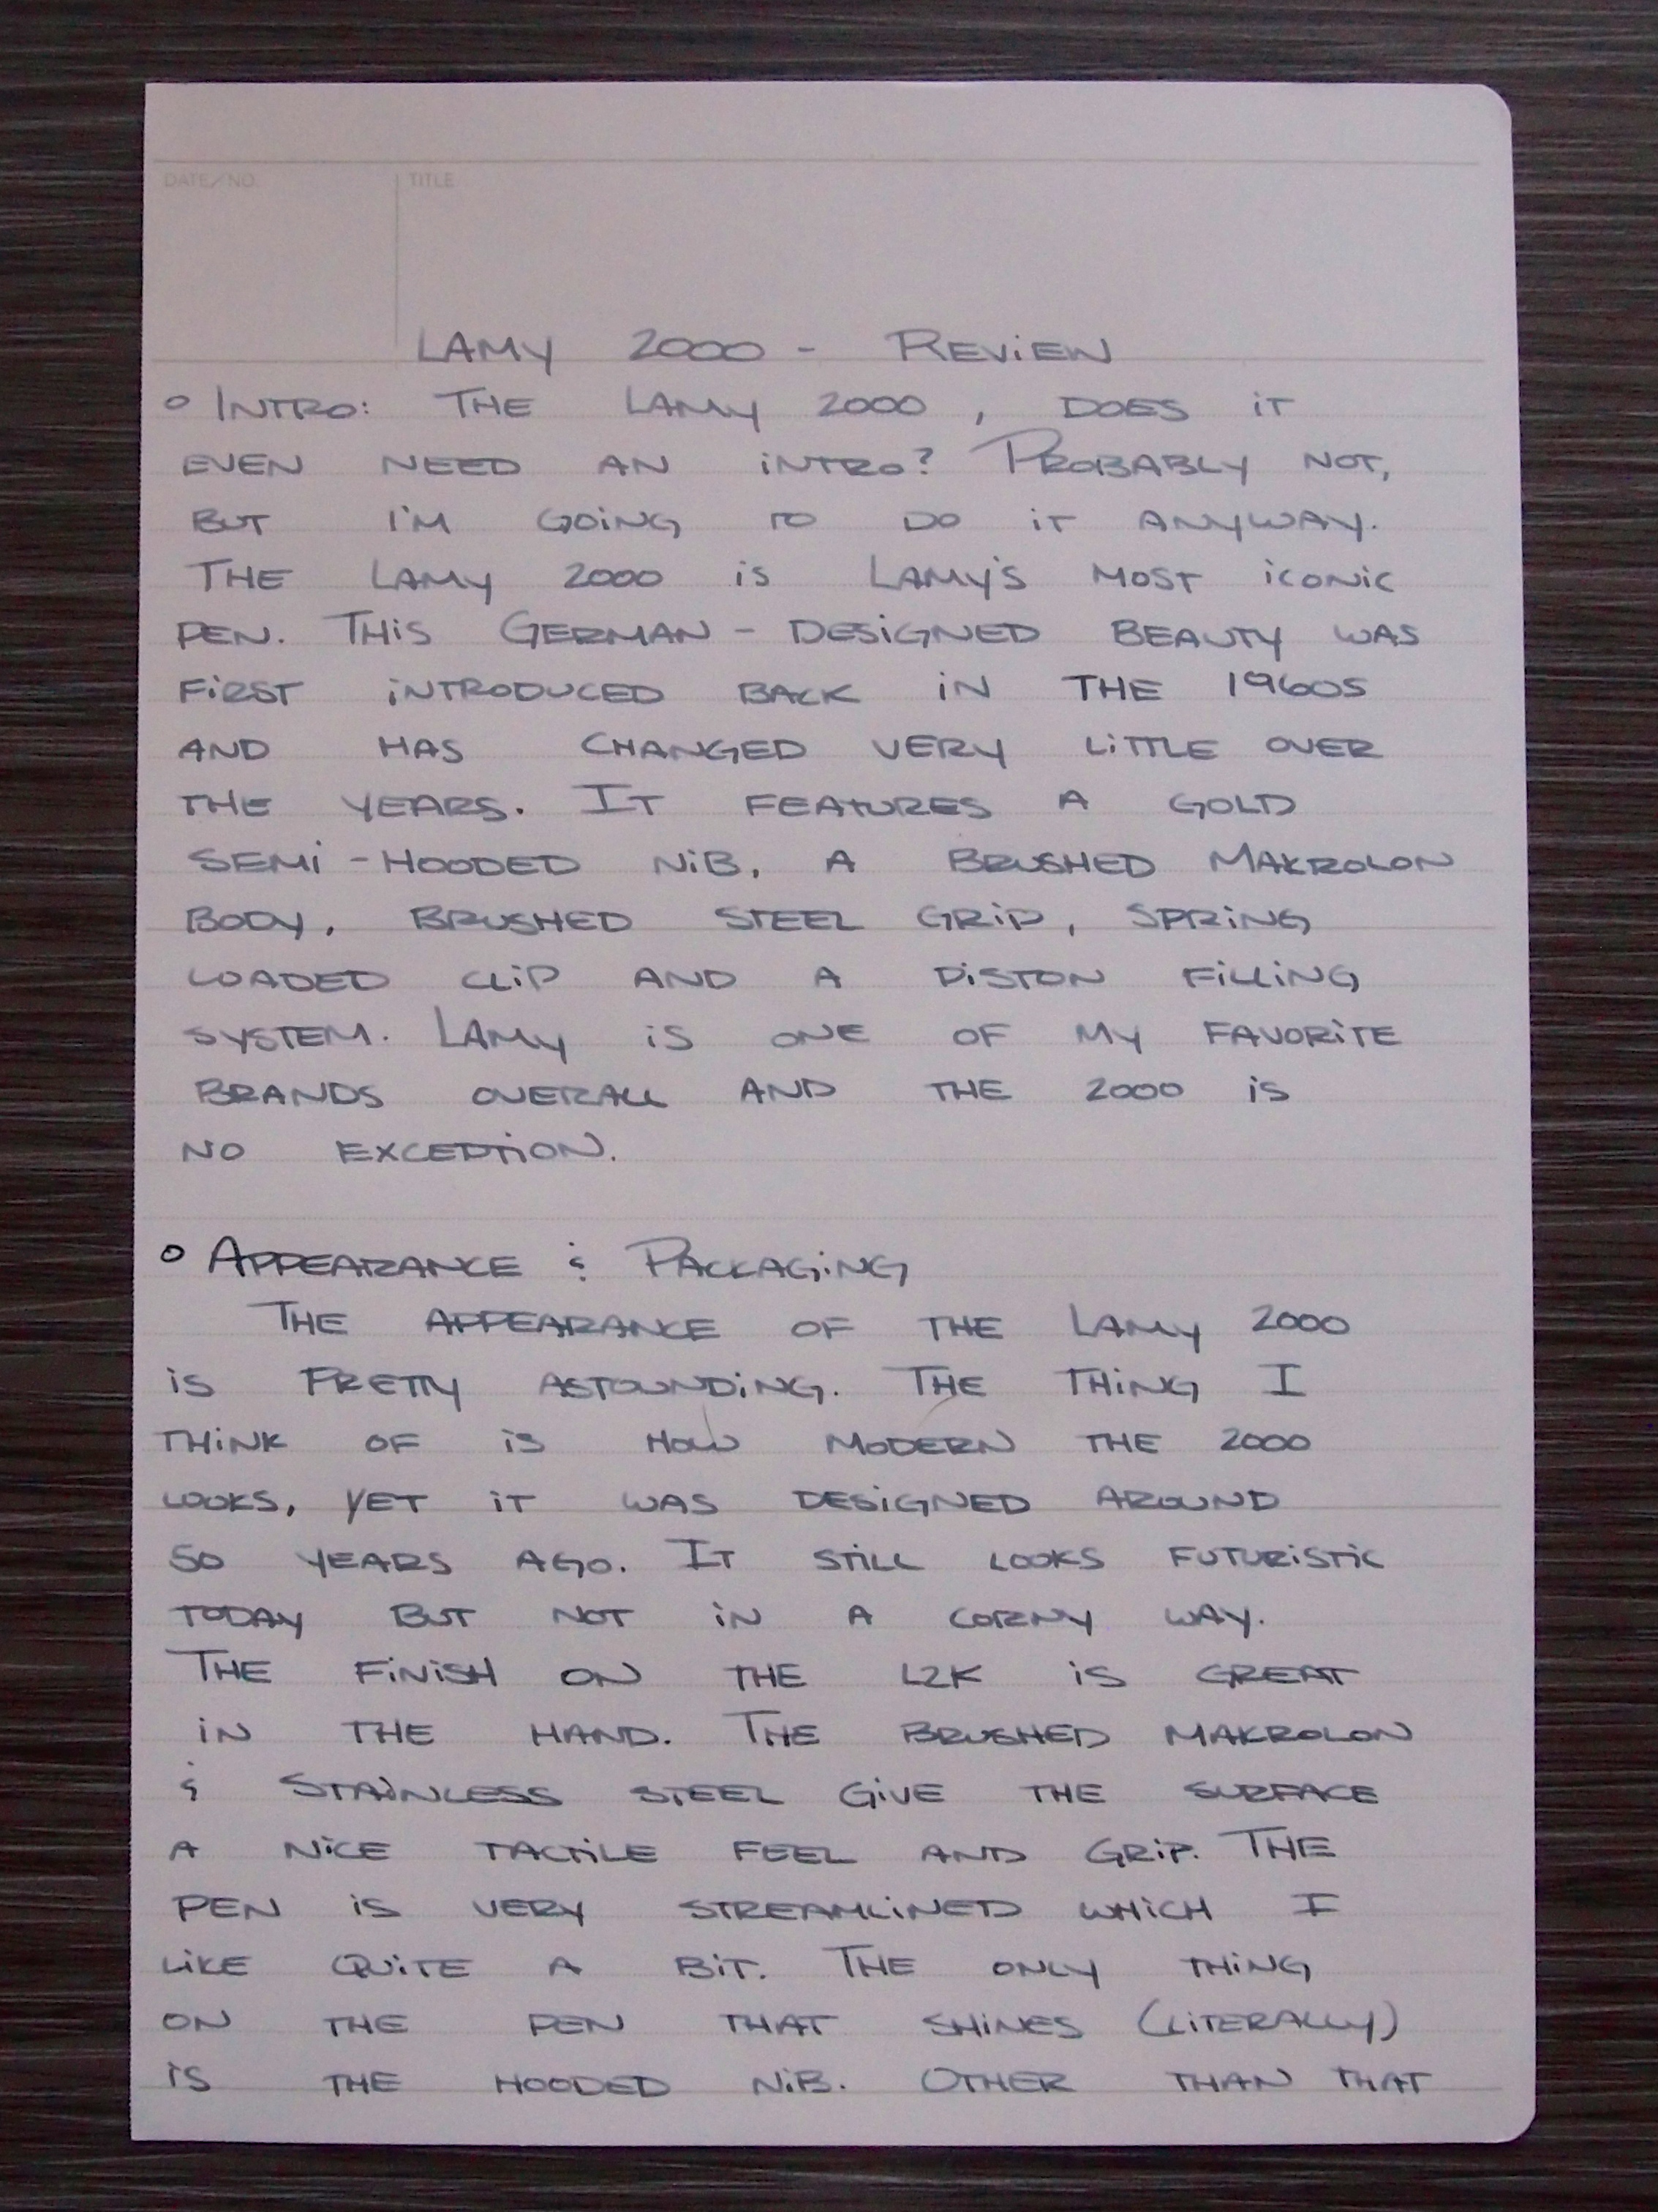 DATE/NO. TITLE
LAMY 2000 - REVIEW
o INTRO: THE LAMY 2000, DOES iT
EVEN NEED AN iNTRO? PROBABLY NOT,
BUT I'M GOiNG TO DO iT ANYWAY.
THE LAMY 2000 iS LAMY'S MOST iCONiC
PEN. THiS GERMAN-DESiGNED BEAUTY WAS
FiRST iNTRODUCED BACK iN THE 1960S
AND HAS CHANGED VERY LiTTLE OVER
THE YEARS. IT FEATURES A GOLD
SEMi-HOODED NiB, A BRUSHED MAKROLON
BODY, BRUSHED STEEL GRiP, SPRiNG
LOADED CLiP AND A PiSTON FiLLiNG
SYSTEM. LAMY iS ONE OF MY FAVORiTE
BRANDS OVERALL AND THE 2000 iS
NO EXCEPTiON.
o APPEARANCE & PACKAGiNG
THE APPEARANCE OF THE LAMY 2000
iS PRETTY ASTOUNDiNG. THE THiNG I
THiNK OF iS HOW MODERN THE 2000
LOOKS, YET iT WAS DESiGNED AROUND
50 YEARS AGO. IT STiLL LOOKS FUTURiSTiC
TODAY BUT NOT iN A CORNY WAY.
THE FiNiSH ON THE L2K iS GREAT
iN THE HAND. THE BRUSHED MAKROLON
& STAiNLESS STEEL GiVE THE SURFACE
A NiCE TACTiLE FEEL AND GRiP. THE
PEN iS VERY STREAMLiNED WHiCH I
LiKE QUiTE A BiT. THE ONLY THiNG
ON THE PEN THAT SHiNES (LiTERALLY)
iS THE HOODED NiB. OTHER THAN THAT